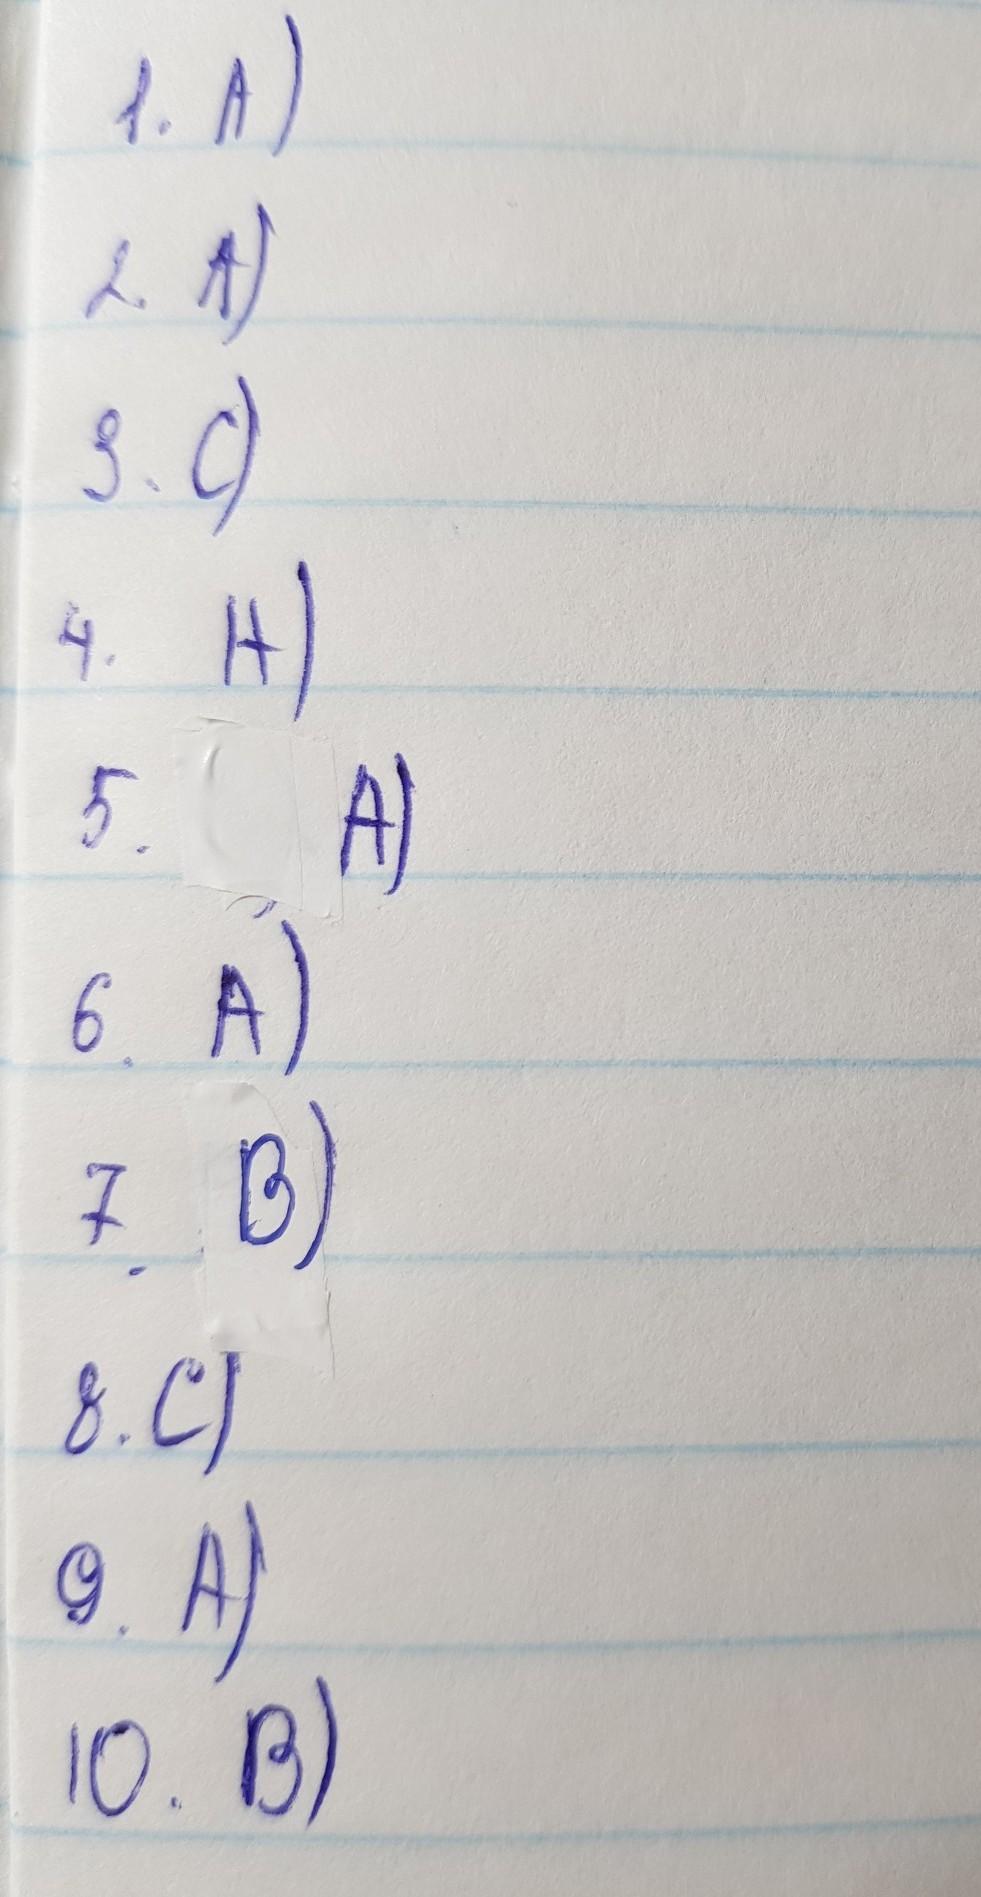 1. A)
2. A)
3. C)
4. H)
5. A)
6. A)
7. B)
8. C)
9. A)
10. B)